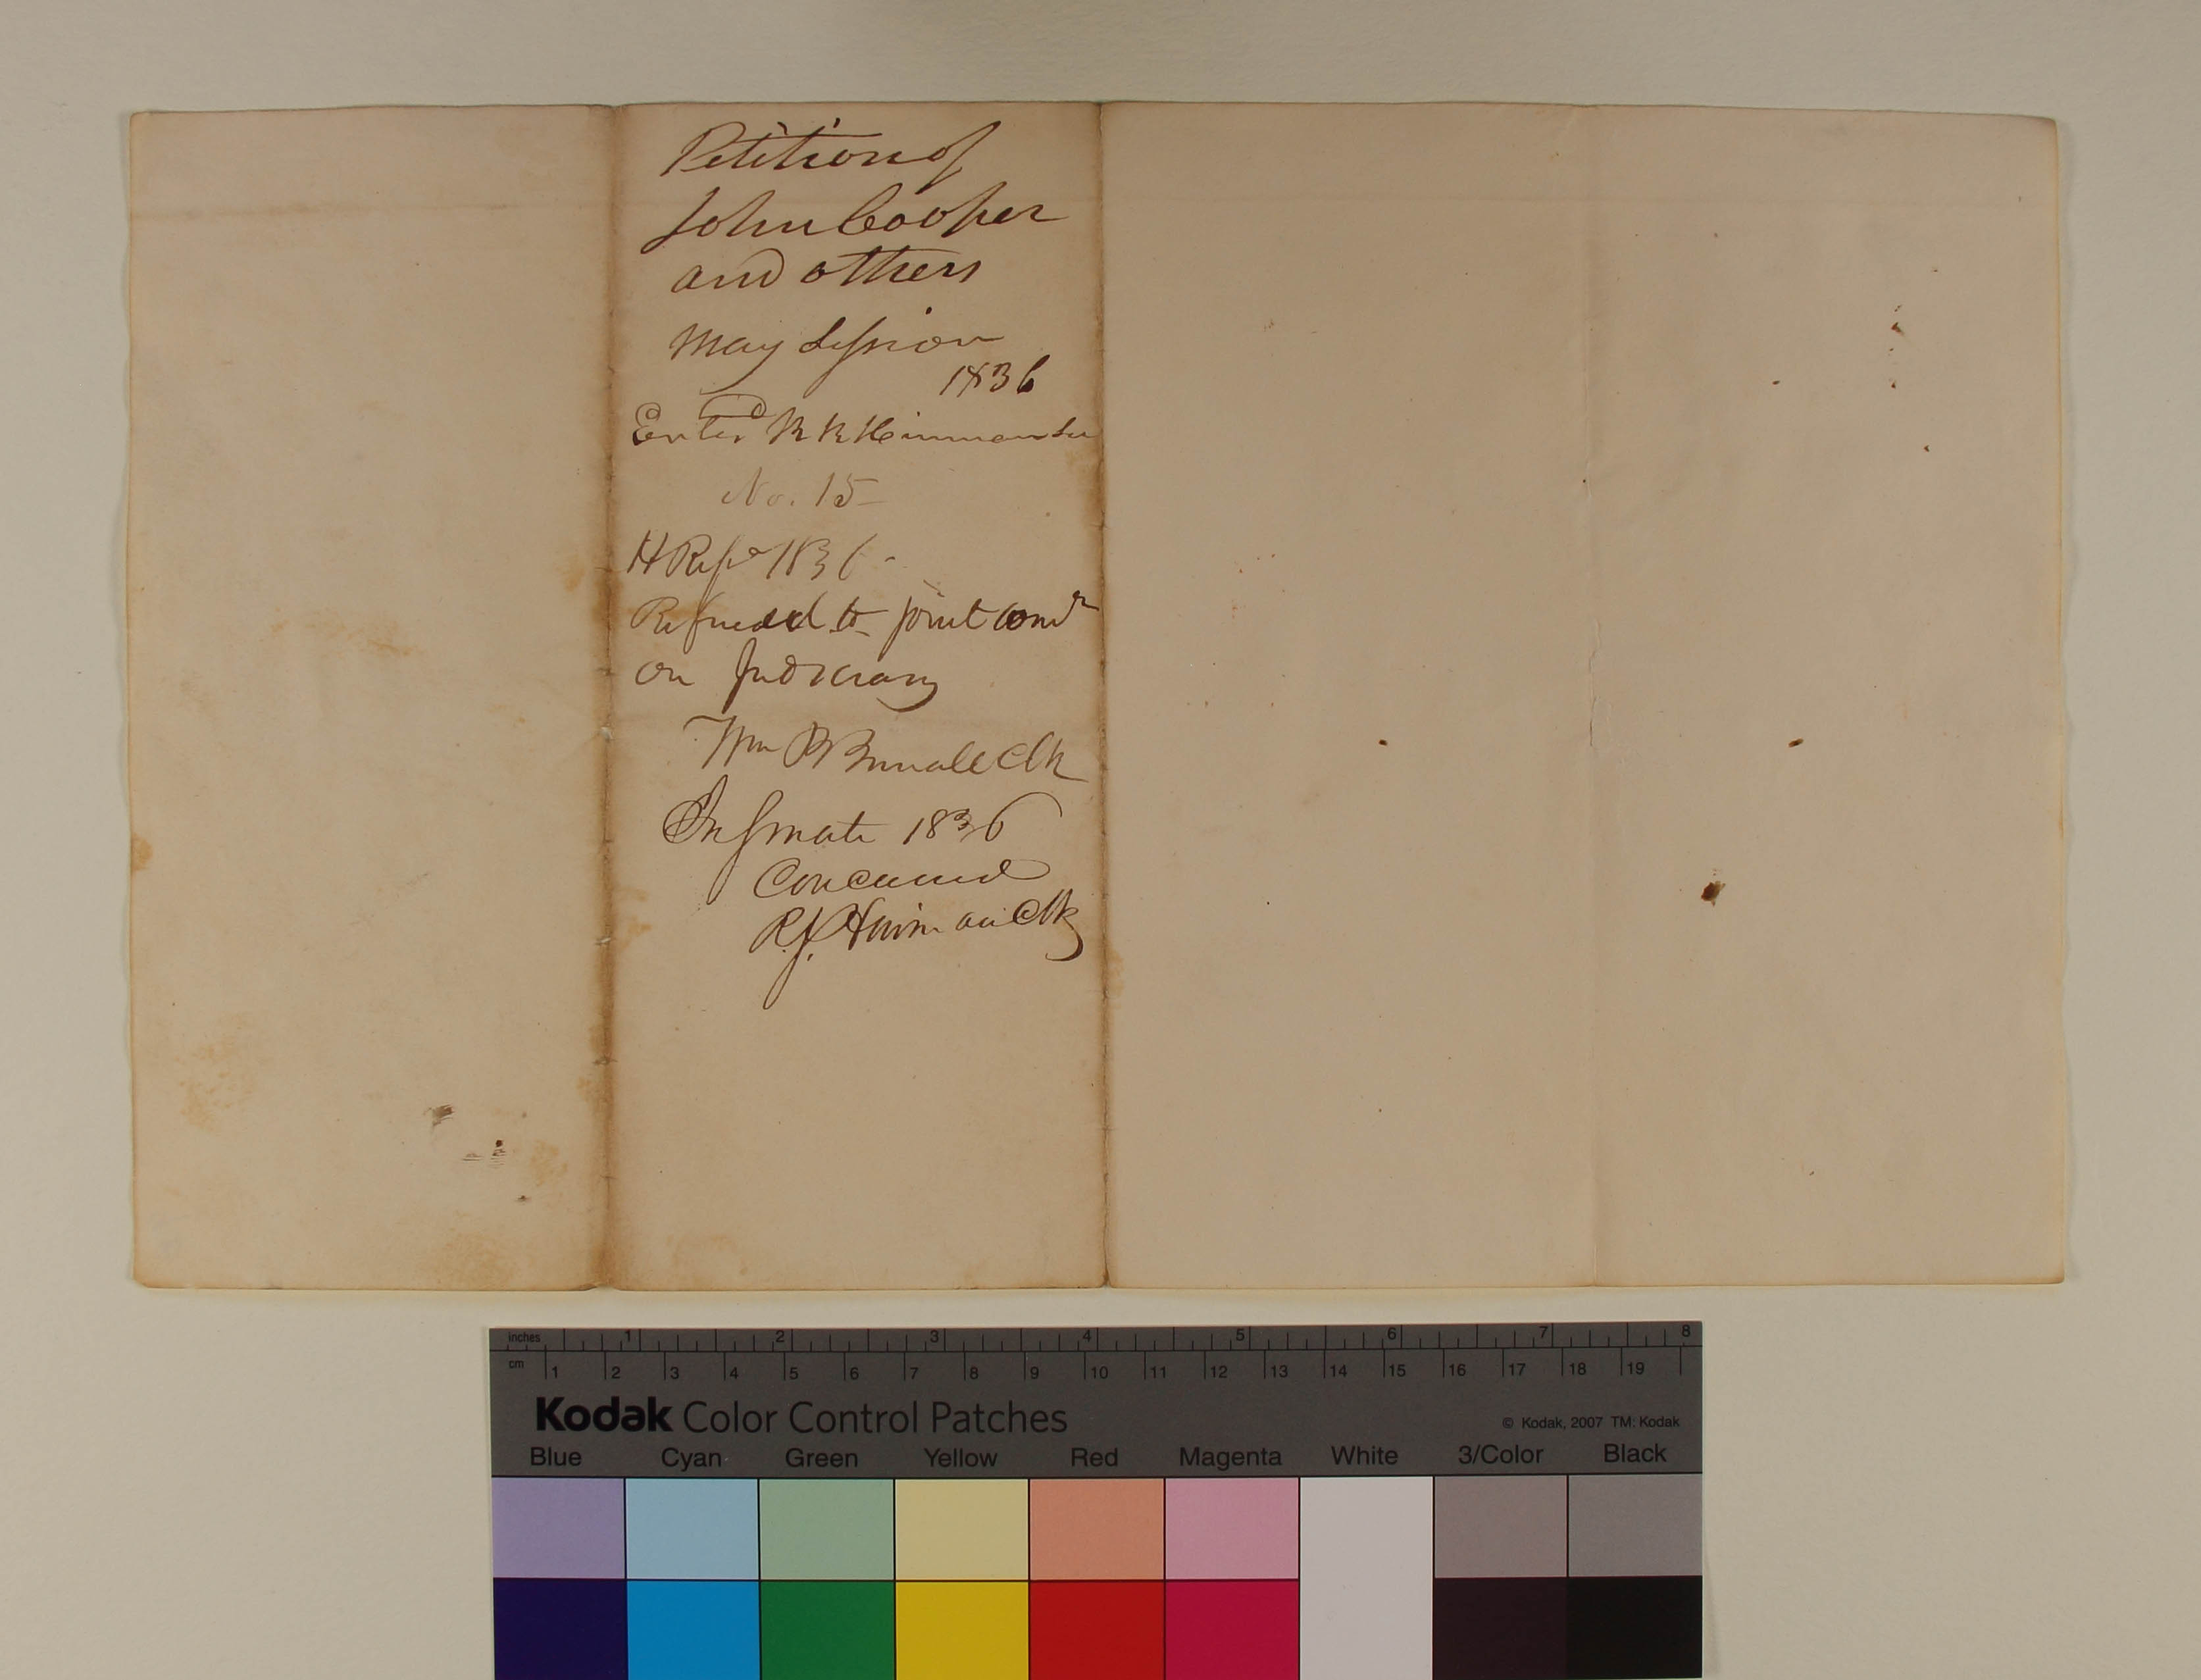 Petition of
John Cooper
and others
May Session
1836
Enterd R R Hinman Sec
No. 15
H Reps 1836
Referred to joint Come
on Judiciary
Wm P Burrall Clk
In Senate 1836
Concurred
R. J. Hinman Clk
inches 1 2 3 4 5 6 7 8
cm 1 2 3 4 5 6 7 8 9 10 11 12 13 14 15 16 17 18 19
Kodak Color Control Patches
© Kodak, 2007 TM: Kodak
Blue Cyan Green Yellow Red Magenta White 3/Color Black